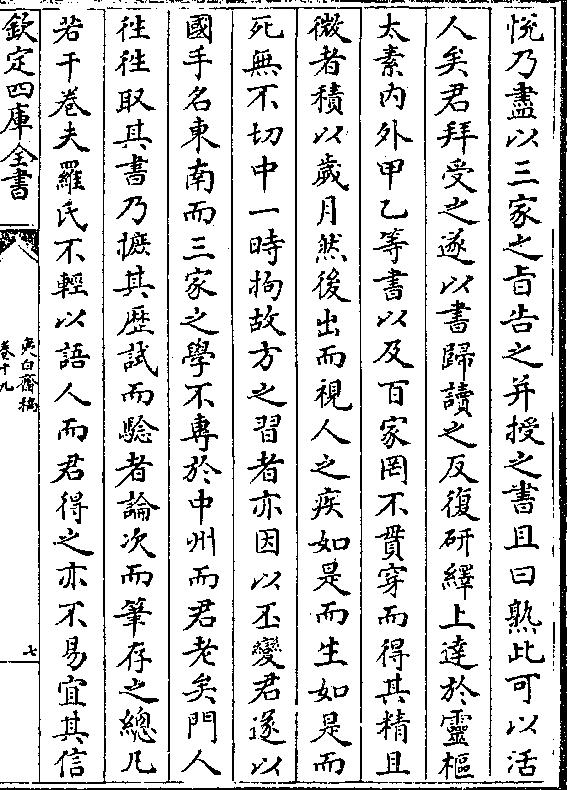 悅乃盡以三家之旨告之并授之書且曰熟此可以活
人矣君拜受之遂以書歸讀之反復研繹上達於靈樞
太素内外甲乙等書以及百家罔不貫穿而得其精且
微者積以歲月然後出而視人之疾如是而生如是而
死無不切中一時拘故方之習者亦因以丕變君遂以
國手名東南而三家之學不專於中州而君老矣門人
往往取其書乃摭其歴試而驗者論次而筆存之總凡
若干卷夫羅氏不輕以語人而君得之亦不易宜其信
欽定四庫全書
夷白齋稿
卷十九
七